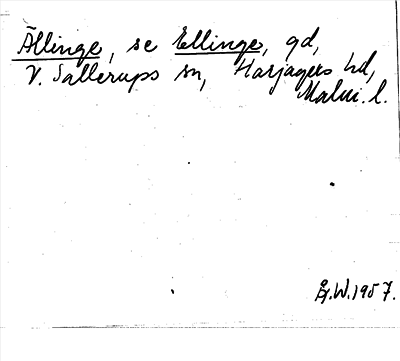 Ällinge, se Ellinge, gd,
V. Sallerups sn, Harjagers hd,
Malm. l.
Å.W.1957.